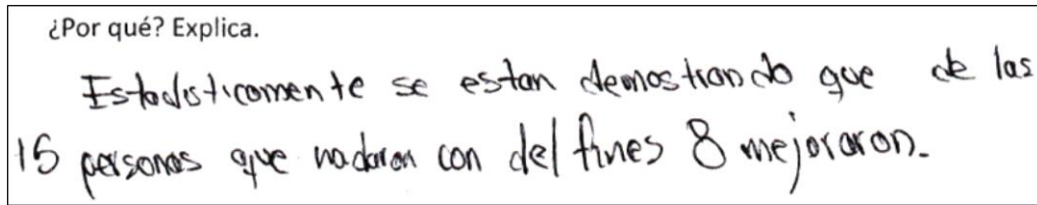 ¿Por qué? Explica.
Estadisticamente se estan demostrando que de las
15 personas que nadaron con delfines 8 mejoraron.